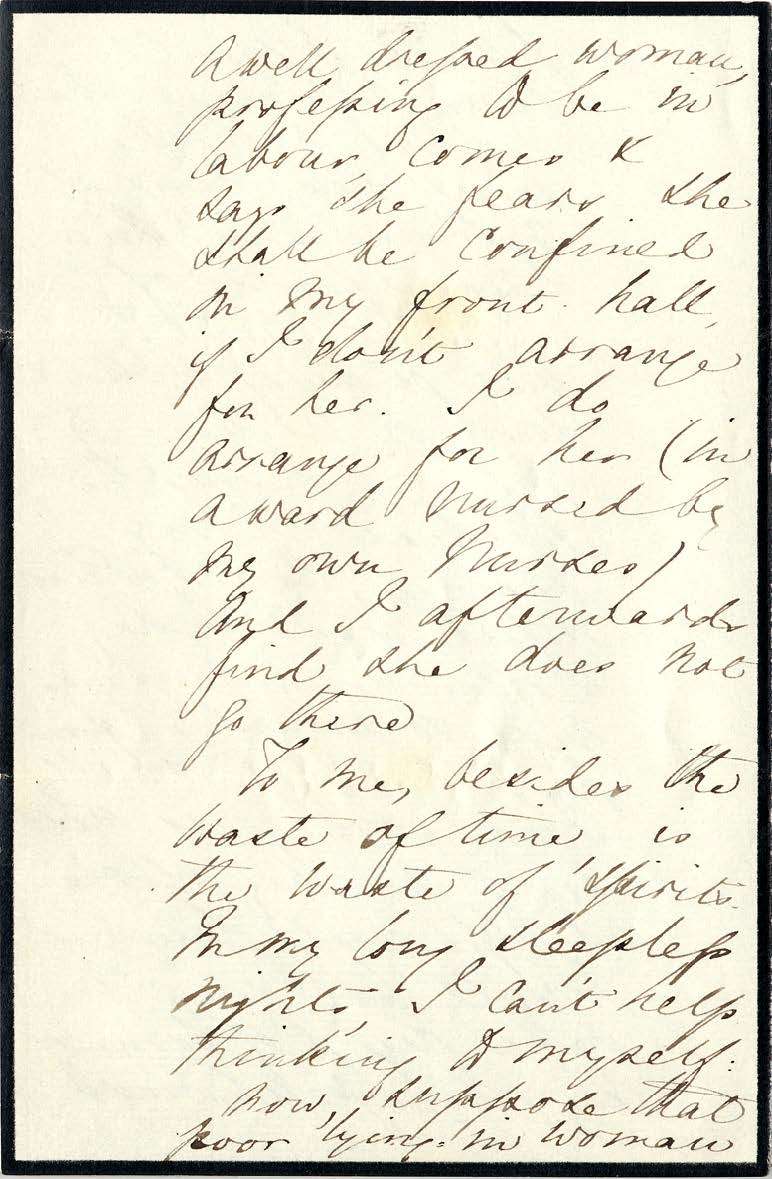 A well dressed woman,
professing to be in
labour, comes &
says she fears she
shall be confined
in my front hall,
if I don't arrange
for her. I do
arrange for her (in
a ward nursed by
my own Nurses)
And I afterwards
find she does not
go there
To me, besides the
waste of time is
the waste of spirits.
In my long sleepless
nights, I can't help
thinking to myself:
now, suppose that
poor lying-in woman